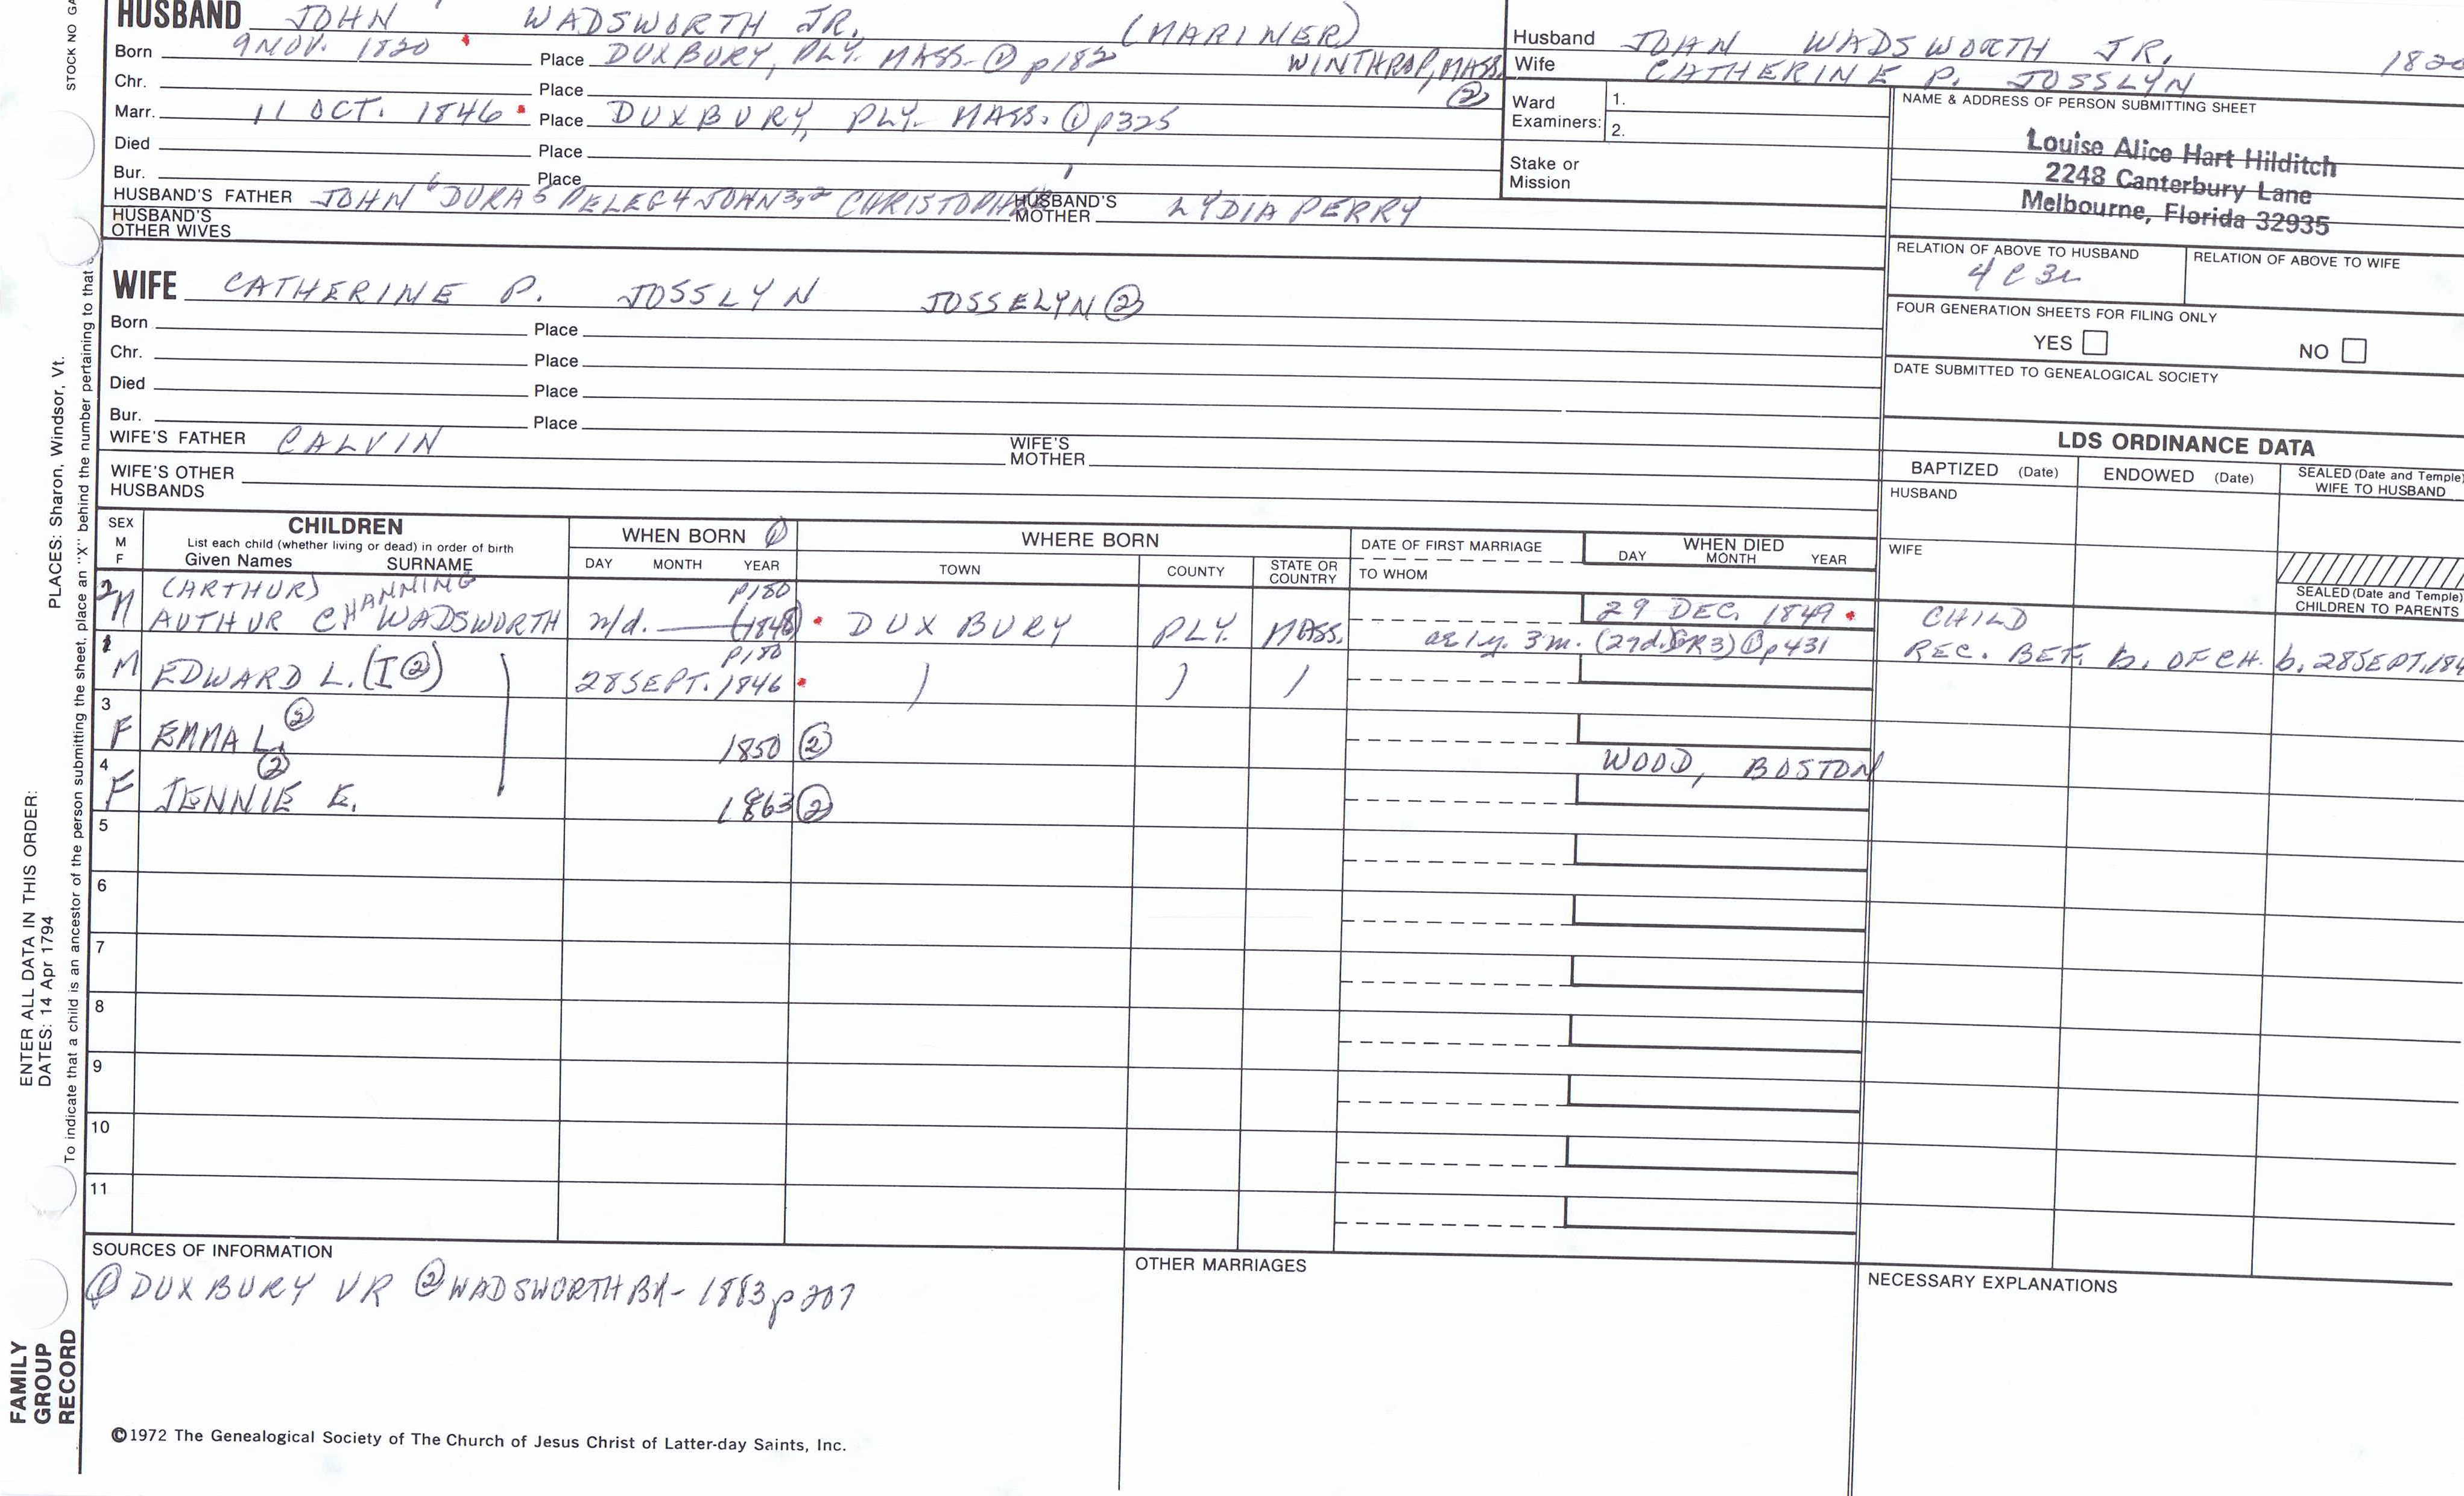 HUSBAND JOHN WADSWORTH JR. (MARINER)
Born 9 NOV. 1820 Place DUXBURY, PLY. MASS. ① p182 WINTHROP, MASS. ②
Chr. Place
Marr. 11 OCT. 1846 Place DUXBURY, PLY. MASS. ① p325
Died Place
Bur. Place
HUSBAND'S FATHER JOHN 6 DURA 5 PELEG 4 JOHN 3,2 HUSBAND'S MOTHER LYDIA PERRY
HUSBAND'S OTHER WIVES
Husband JOHN WADSWORTH JR. 1820
Wife CATHERINE P. JOSSLYN
Ward Examiners: 1.
2.
Stake or Mission
NAME & ADDRESS OF PERSON SUBMITTING SHEET
Louise Alice Hart Hilditch
2248 Canterbury Lane
Melbourne, Florida 32935
RELATION OF ABOVE TO HUSBAND RELATION OF ABOVE TO WIFE
FOUR GENERATION SHEETS FOR FILING ONLY
YES NO
DATE SUBMITTED TO GENEALOGICAL SOCIETY
WIFE CATHERINE P. JOSSLYN JOSSELYN ②
Born Place
Chr. Place
Died Place
Bur. Place
WIFE'S FATHER CALVIN WIFE'S MOTHER
WIFE'S OTHER HUSBANDS
LDS ORDINANCE DATA
BAPTIZED (Date) ENDOWED (Date) SEALED (Date and Temple) WIFE TO HUSBAND
HUSBAND
WIFE
SEALED (Date and Temple) CHILDREN TO PARENTS
SEX M F CHILDREN WHEN BORN ① WHERE BORN DATE OF FIRST MARRIAGE WHEN DIED
List each child (whether living or dead) in order of birth
Given Names SURNAME DAY MONTH YEAR TOWN COUNTY STATE OR COUNTRY TO WHOM DAY MONTH YEAR
(ARTHUR) CHANNING p180
2 M AUTHUR CH WADSWORTH n/d. (1848) DUXBURY PLY. MASS. 29 DEC. 1849 CHILD
ae 1y. 3m. (27d. GR3) ① p431 REC. BEF. b. OF CH. b. 28 SEPT. 184
p180
1 M EDWARD L. (I ②) 28 SEPT. 1846
3 F EMMA L. ② 1850 ②
WOOD, BOSTON
4 F JENNIE E. ② 1863 ②
5
6
7
8
9
10
11
SOURCES OF INFORMATION
① DUXBURY VR ② WADSWORTH BK - 1883 p 207
OTHER MARRIAGES
NECESSARY EXPLANATIONS
©1972 The Genealogical Society of The Church of Jesus Christ of Latter-day Saints, Inc.
STOCK NO GA
PLACES: Sharon, Windsor, Vt.
ENTER ALL DATA IN THIS ORDER:
DATES: 14 Apr 1794
To indicate that a child is an ancestor of the person submitting the sheet, place an "X" behind the number pertaining to that
FAMILY
GROUP
RECORD